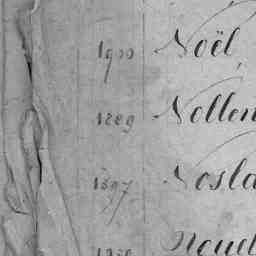 1900 Noël
1889 Nollen
1897 Nosla
Noud